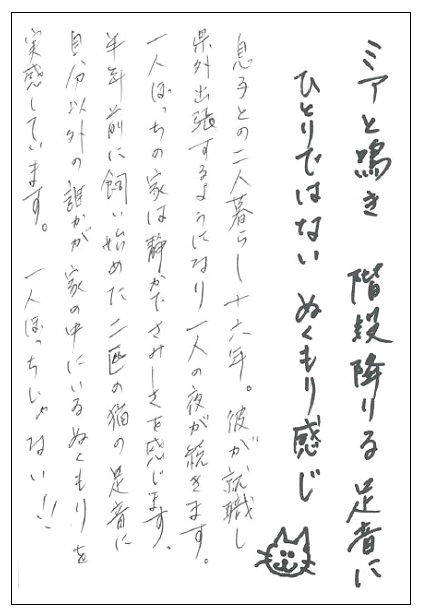 ミアと鳴き 階段降りる 足音に
ひとりではない ぬくもり感じ
息子との二人暮らし十六年。彼が就職し
県外出張するようになり一人の夜が続きます。
一人ぼっちの家は静かでさみしさを感じます。
半年前に飼い始めた二匹の猫の足音に
自分以外の誰かが家の中にいるぬくもりを
実感しています。 一人ぼっちじゃない!!